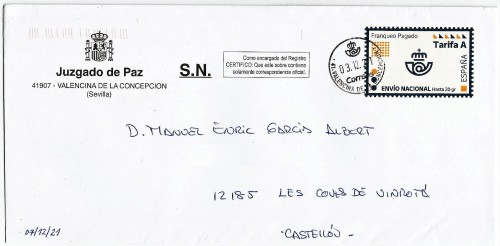 Juzgado de Paz
41907 - VALENCINA DE LA CONCEPCION
(Sevilla)
S.N.
Como encargado del Registro
CERTIFICO: Que este sobre contiene
solamente correspondencia oficial.
Franqueo Pagado
Tarifa A
ESPAÑA
ENVÍO NACIONAL Hasta 20 gr
03.12.
D. MANUEL ENRIC GARCÍA ALBERT
12185 LES COVES DE VINROMÀ
-CASTELLÓN-
07/12/21